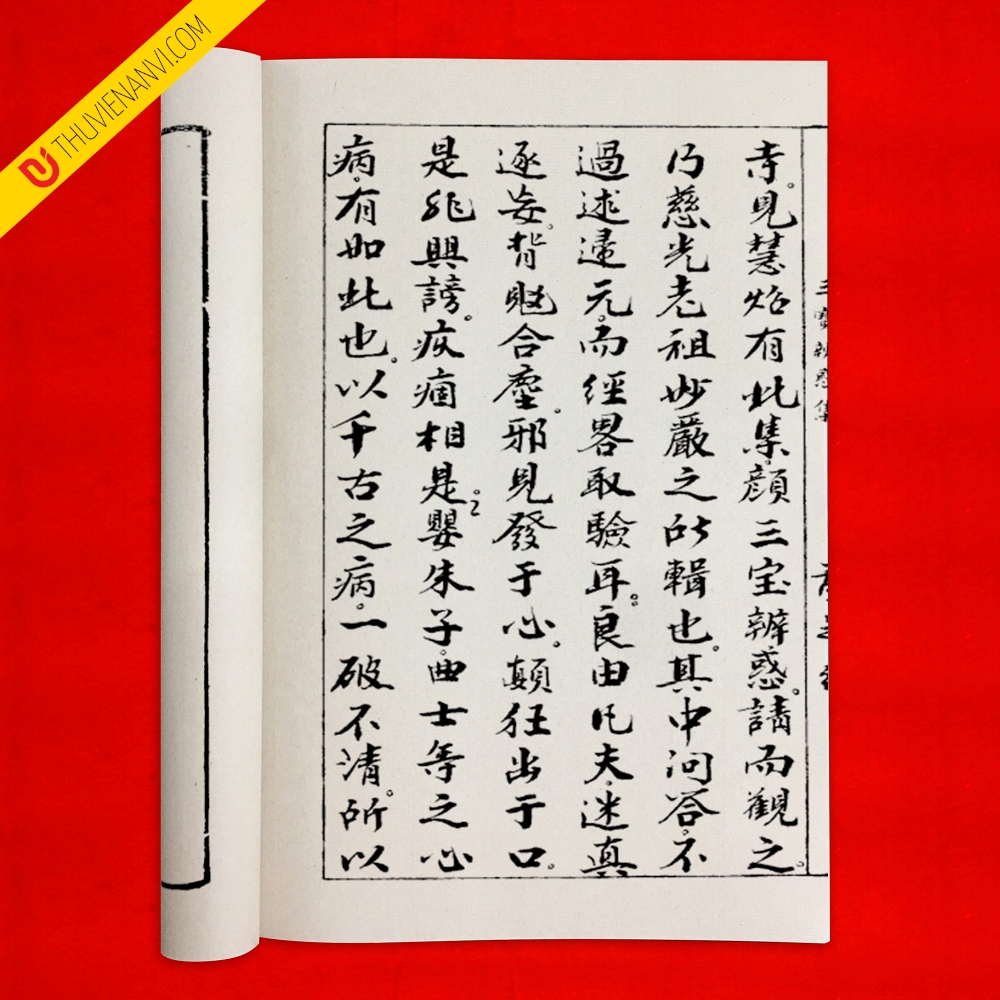 THUVIENANVI.COM
三寶辨惑集
寺。見慧炤有此集。顔三宝辨惑。請而觀之。
乃慈光老祖妙嚴之所輯也。其中问答。不
過述遠元。而經畧取驗耳。良由凡夫。迷真
逐妄。背合塵。邪見發于心。顛狂出于口。
是非興謗。疾痼相是。嬰朱子。曲士等之心
病。有如此也。以千古之病。一破不清。所以